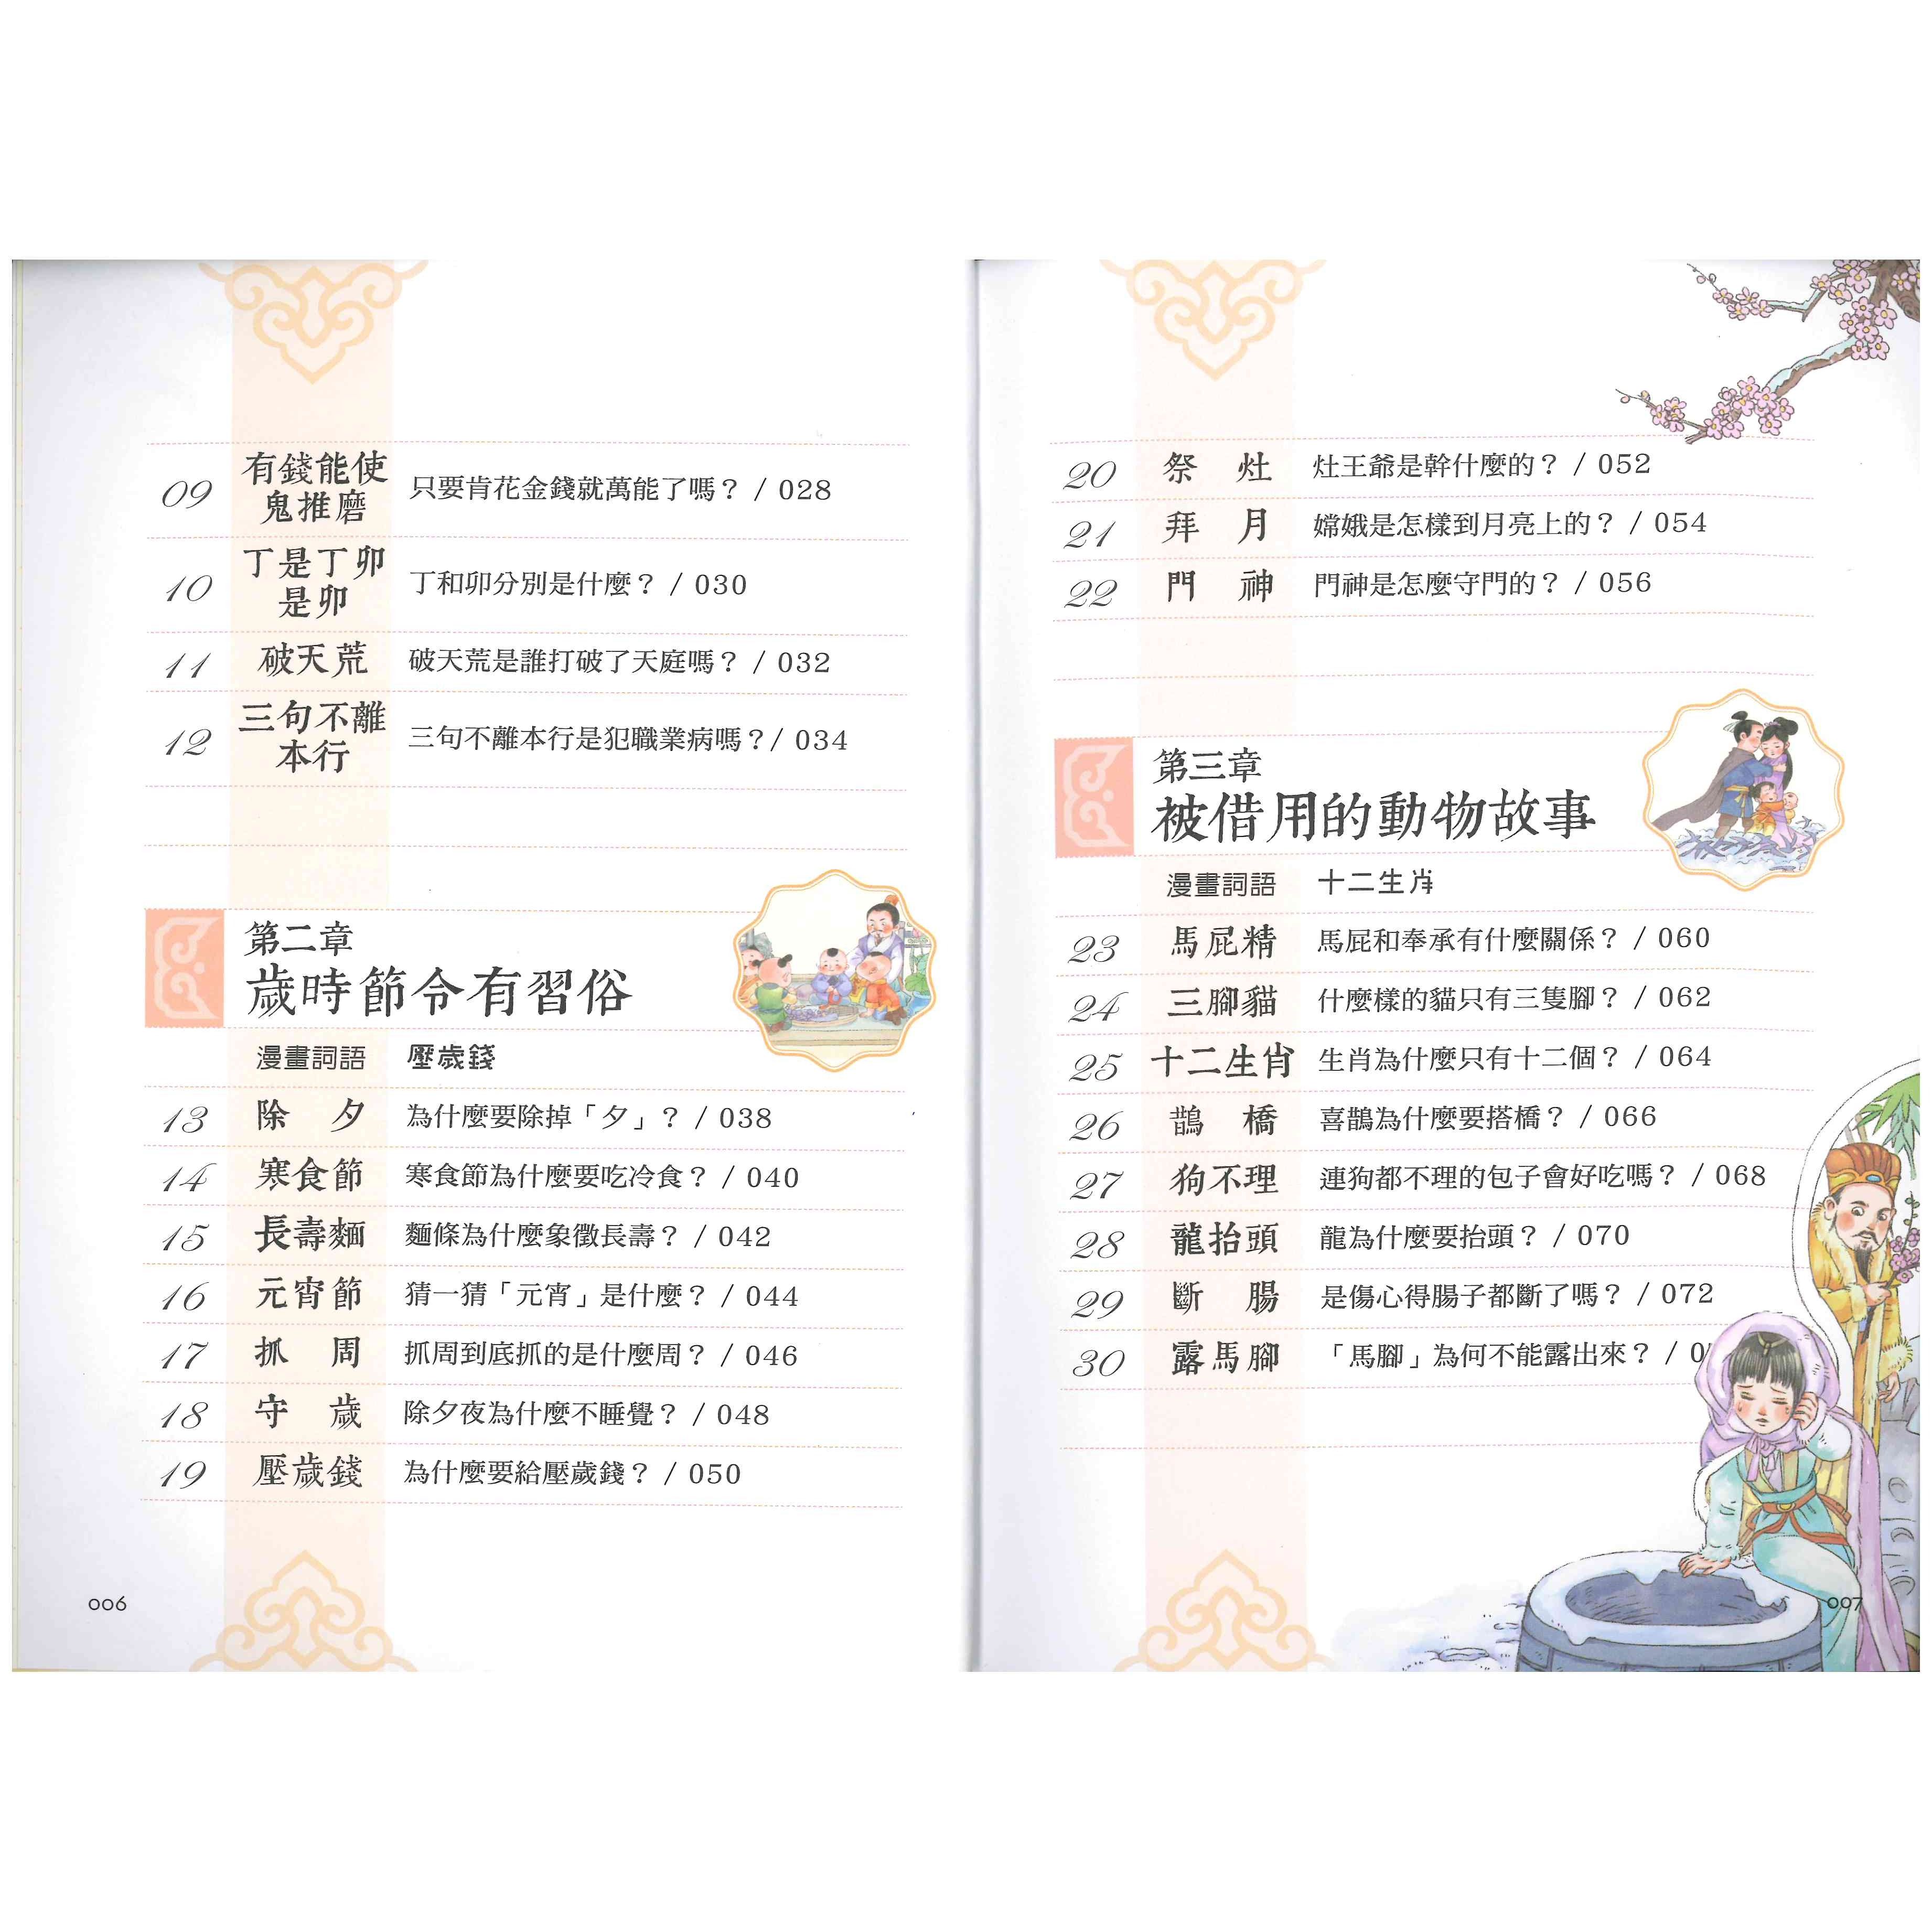 09 有錢能使 鬼推磨 只要肯花金錢就萬能了嗎？ / 028
10 丁是丁卯 是卯 丁和卯分別是什麼？ / 030
11 破天荒 破天荒是誰打破了天庭嗎？ / 032
12 三句不離 本行 三句不離本行是犯職業病嗎？/ 034
第二章
歲時節令有習俗
漫畫詞語 壓歲錢
13 除 夕 為什麼要除掉「夕」？ / 038
14 寒食節 寒食節為什麼要吃冷食？ / 040
15 長壽麵 麵條為什麼象徵長壽？ / 042
16 元宵節 猜一猜「元宵」是什麼？ / 044
17 抓 周 抓周到底抓的是什麼周？ / 046
18 守 歲 除夕夜為什麼不睡覺？ / 048
19 壓歲錢 為什麼要給壓歲錢？ / 050
006
20 祭 灶 灶王爺是幹什麼的？ / 052
21 拜 月 嫦娥是怎樣到月亮上的？ / 054
22 門 神 門神是怎麼守門的？ / 056
第三章
被借用的動物故事
漫畫詞語 十二生肖
23 馬屁精 馬屁和奉承有什麼關係？ / 060
24 三腳貓 什麼樣的貓只有三隻腳？ / 062
25 十二生肖 生肖為什麼只有十二個？ / 064
26 鵲 橋 喜鵲為什麼要搭橋？ / 066
27 狗不理 連狗都不理的包子會好吃嗎？ / 068
28 龍抬頭 龍為什麼要抬頭？ / 070
29 斷 腸 是傷心得腸子都斷了嗎？ / 072
30 露馬腳 「馬腳」為何不能露出來？ / 0
007